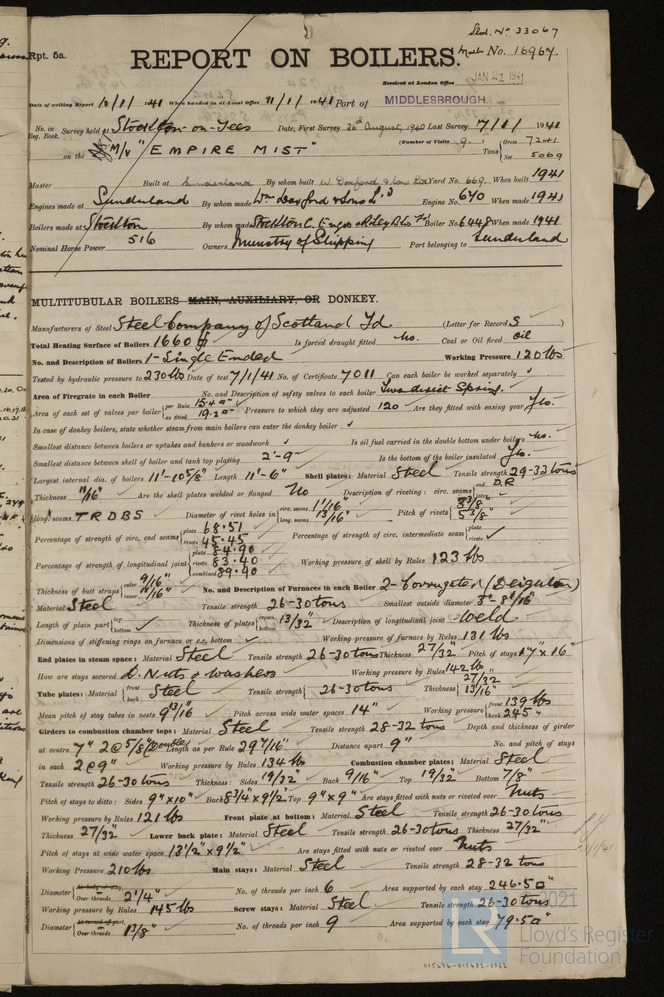 Sld. No 33067
Rpt. 5a.
REPORT ON BOILERS.
No. 16967.
Received at London Office JAN 21 1941
Date of writing Report 10/1/1941 When handed in at Local Office 11/1/1941 Port of MIDDLESBROUGH
No. in Reg. Book. Survey held at Stockton-on-Tees Date, First Survey 26th August, 1940 Last Survey 7/1/1941
on the M/V "EMPIRE MIST" (Number of Visits 9) Tons Gross 7241 Net 5069
Master Built at Sunderland By whom built W. Doxford & Sons Yard No. 669. When built 1941
Engines made at Sunderland By whom made Wm Doxford & Sons Ld Engine No. 670 When made 1941
Boilers made at Stockton By whom made Stockton C. Engrs & Riley Blrs Ld Boiler No. 6448 When made 1941
Nominal Horse Power 516 Owners Ministry of Shipping Port belonging to Sunderland
MULTITUBULAR BOILERS MAIN, AUXILIARY, OR DONKEY.
Manufacturers of Steel Steel Company of Scotland Ld (Letter for Record S)
Total Heating Surface of Boilers 1660 Is forced draught fitted No. Coal or Oil fired Oil
No. and Description of Boilers 1-Single Ended Working Pressure 120 lbs
Tested by hydraulic pressure to 230 lbs Date of test 7/1/41 No. of Certificate 7011 Can each boiler be worked separately ✓
Area of Firegrate in each Boiler No. and Description of safety valves to each boiler Two direct Spring.
Area of each set of valves per boiler per Rule 15.4 as fitted 19.2 Pressure to which they are adjusted 120 Are they fitted with easing gear Yes.
In case of donkey boilers, state whether steam from main boilers can enter the donkey boiler ✓
Smallest distance between boilers or uptakes and bunkers or woodwork ✓ Is oil fuel carried in the double bottom under boilers No.
Smallest distance between shell of boiler and tank top plating 2'-9" Is the bottom of the boiler insulated Yes.
Largest internal dia. of boilers 11'-10 5/8" Length 11'-6" Shell plates: Material Steel Tensile strength 29-33 tons
Thickness 11/16" Are the shell plates welded or flanged No Description of riveting: circ. seams end D.R inter. ✓
long. seams T R D B S Diameter of rivet holes in circ. seams 1 1/16" long. seams 13/16" Pitch of rivets 3 3/8" 5 3/8"
Percentage of strength of circ. end seams plate 68.51 rivets 45.45 Percentage of strength of circ. intermediate seam plate rivets ✓
Percentage of strength of longitudinal joint plate 84.90 rivets 83.40 combined 89.90 Working pressure of shell by Rules 123 lbs
Thickness of butt straps outer 9/16" inner 11/16" No. and Description of Furnaces in each Boiler 2-Corrugated (Deighton)
Material Steel Tensile strength 26-30 tons Smallest outside diameter
Length of plain part top bottom ✓ Thickness of plates crown bottom 13/32" Description of longitudinal joint Weld
Dimensions of stiffening rings on furnace or c.c. bottom ✓ Working pressure of furnace by Rules 131 lbs
End plates in steam space: Material Steel Tensile strength 26-30 tons Thickness 27/32" Pitch of stays 17" x 16"
How are stays secured D. Nuts & washers Working pressure by Rules 142 lbs
Tube plates: Material front back Steel Tensile strength 26-30 tons Thickness 27/32" 13/16"
Mean pitch of stay tubes in nests 9 13/16 Pitch across wide water spaces 14" Working pressure front 139 lbs back 245"
Girders to combustion chamber tops: Material Steel Tensile strength 28-32 tons Depth and thickness of girder
at centre 7" 2 @ 5/8 (Double) Length as per Rule 29 7/16" Distance apart 9" No. and pitch of stays
in each 2 @ 9" Working pressure by Rules 134 lbs Combustion chamber plates: Material Steel
Tensile strength 26-30 tons Thickness: Sides 19/32" Back 9/16" Top 19/32" Bottom 7/8"
Pitch of stays to ditto: Sides 9" x 10" Back 8 3/4" x 9 1/2" Top 9" x 9" Are stays fitted with nuts or riveted over Nuts
Working pressure by Rules 121 lbs Front plate at bottom: Material Steel Tensile strength 26-30 tons
Thickness 27/32" Lower back plate: Material Steel Tensile strength 26-30 tons Thickness 27/32"
Pitch of stays at wide water space 13 1/2" x 9 1/2" Are stays fitted with nuts or riveted over Nuts
Working Pressure 210 lbs Main stays: Material Steel Tensile strength 28-32 tons
Diameter At body of stay, or Over threads 2 1/4" No. of threads per inch 6 Area supported by each stay 246.5 □"
Working pressure by Rules 145 lbs Screw stays: Material Steel Tensile strength 26-30 tons
Diameter At turned off part, or Over threads 1 3/8" No. of threads per inch 9 Area supported by each stay 79.5 □"
© 2021
LR
Lloyd's Register
Foundation
015676-015682-0062